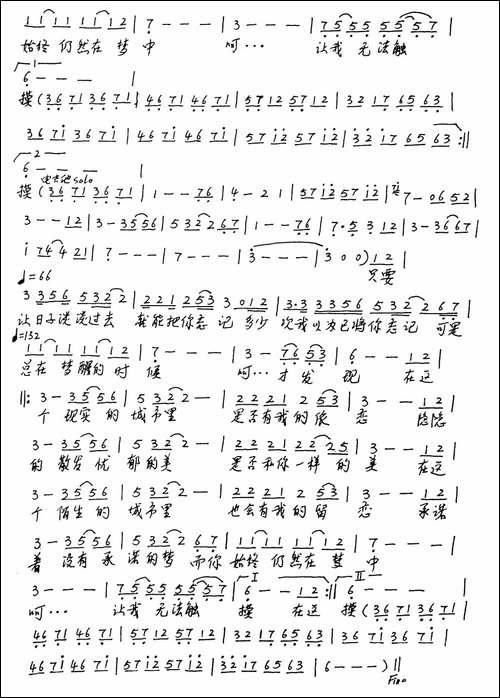 1 1 1 1 1 1 1 2 | 7 - - - | 3 - - - | 7 5 5 5 5 5 5 7 |
始终仍然在梦中 呵… 让我无法触
1
6 - - - |
摸 (3 6 7 1 3 6 7 1 | 4 6 7 1 4 6 7 1 | 5 7 1 2 5 7 1 2 | 3 2 1 7 6 5 6 3 |
3 6 7 i 3 6 7 i | 4 6 7 i 4 6 7 i | 5 7 i 2 5 7 i 2 | 3 2 i 7 6 5 6 3 :||
2
6 - - - |
电吉他solo
摸 (3 6 7 1 3 6 7 1 | 1 - - 7 6 | 4 - 2 1 | 5 7 i 2 5 7 i 2 | 7 - 0 6 5 2 |
3 - - 1 2 | 3 - 3 5 5 6 | 5 3 2 2 6 7 | 1 - - 7 6 | 7 · 5 3 1 2 | 3 - 3 6 6 7 |
i 7 4 4 2 1 | 7 - - - | 7 - - - | 3 - - - | 3 0 0) 1 2 |
♩=66 只要
3 3 3 5 6 5 3 2 2 | 2 2 1 2 5 3 3 0 1 2 | 3 · 3 3 3 5 6 5 3 2 2 6 7 |
让日子淡淡过去 就能把你忘记 多少次我以为已将你忘记 可是
♩=132
1 1 1 1 1 1 1 2 | 7 - - - | 3 - 7 6 5 3 | 6 - - 1 2 |
总在梦醒的时候 呵…才发现 在这
||: 3 - 3 5 5 6 | 5 3 2 2 - | 2 2 2 1 2 5 3 | 3 - - 1 2 |
个现实的城市里 是否有我的依恋 隐隐
3 - 3 5 5 6 | 5 3 2 2 - | 2 2 2 1 2 2 2 5 | 3 - - 1 2 |
的散发忧郁的美 是否和你一样的美 在这
3 - 3 5 5 6 | 5 3 2 2 - | 2 2 2 1 2 5 3 | 3 - - 1 2 |
个陌生的城市里 也会有我的留恋 承诺
3 - 3 5 5 6 | 5 3 2 2 6 7 | 1 1 1 1 1 1 1 2 | 7 - - - |
着没有承诺的梦 而你始终仍然在梦中
3 - - - | 7 5 5 5 5 5 5 7 | I 6 - - 1 2 :|| II 6 - - - |
呵… 让我无法触摸 在这 摸 (3 6 7 1 3 6 7 1 |
4 6 7 1 4 6 7 1 | 5 7 1 2 5 7 1 2 | 3 2 1 7 6 5 6 3 | 3 6 7 i 3 6 7 i |
4 6 7 i 4 6 7 i | 5 7 i 2 5 7 i 2 | 3 2 i 7 6 5 6 3 | 6 - - - ) ||
Fine